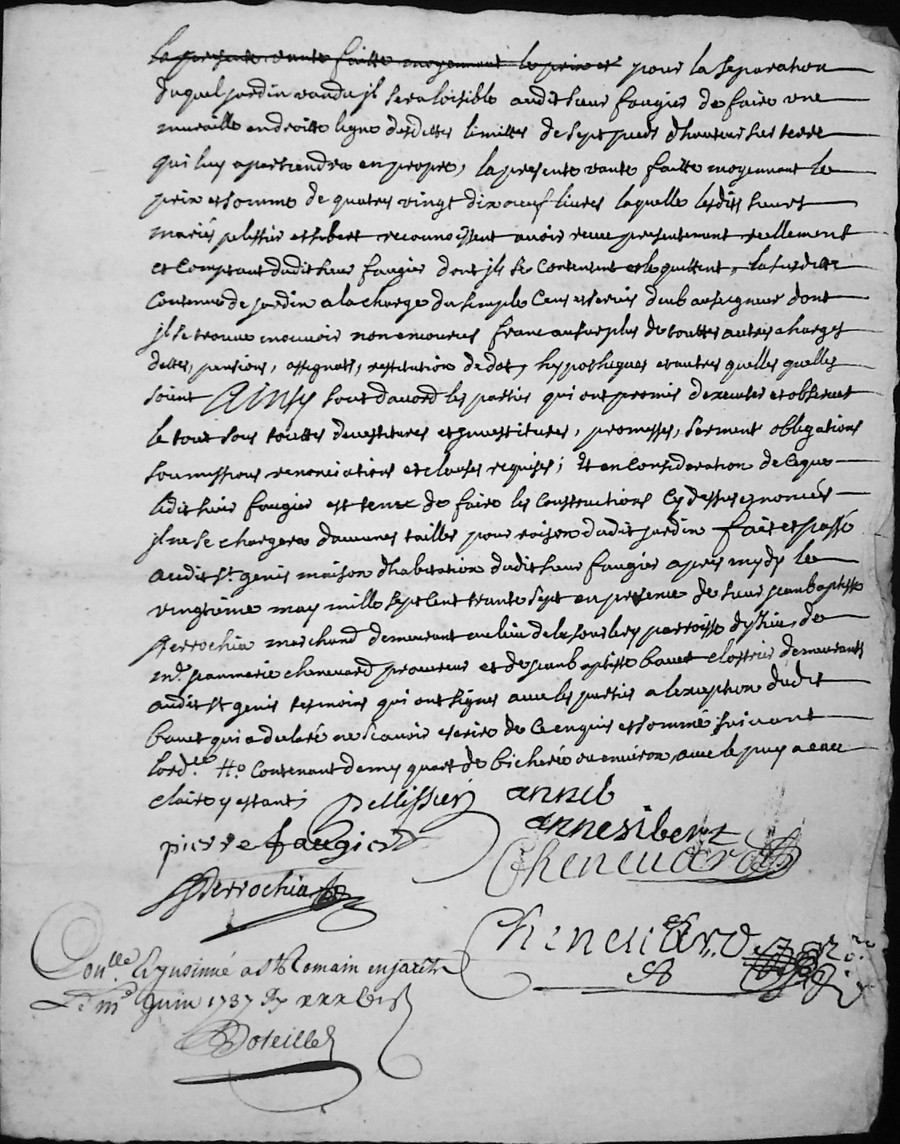 la presente vante faitte moyennant le prix et pour la separation
duquel jardin vandu jl sera loisible audit sieur faugier de faire une
muraille en droitte ligne desdittes limittes de sept pieds dhauteur sur terre
qui luy apartiendra en propre, la presente vante faitte moyennant le
prix et somme de quatres vingt dix neuf livres laquelle lesdits sieurs
mariés pelissier et sibert reconnoissent avoir receu presentement reellement
et Comptant dudit sieur faugier dont jls se Contentent et le quittent, la susditte
Contenue de jardin a la charge du simple Cens et servis deub au seigneur dont
jl se trouve mouvoir franc au surplus de touttes autres charges
dettes, pensions, assignats, restitution de dot, hypotheques et autres quelles quelles
soient Ainsy sont dacord les parties qui ont promis dexecuter et observer
le tout sous touttes devestitures et jnvestitures, promesses, serment obligations
soumissions renonciations et clauses requises; Et en Consideration de Ceque
ledit sieur faugier est tenu de faire les Constructions Cy dessus enoncées
jl ne se chargera daucunes tailles pour raison dudit jardin fait et passé
audit st. genis maison dhabitation dudit sieur faugier apres mydy le
vingtieme may mille sept Cent trante sept en presence de sieur jean baptiste
Perrochia marchand demeurant au lieu de la parroisse de
me. jean marie chenevard procureur et de jean baptiste bavet demeurants
audit st genis tesmoins qui ont signes avec les parties a lexception dudit
bavet qui a declaré ne scavoir escrire de Ce enquis et sommé suivant
lordce. Contenant demy quart de bicherée ou environ, avec le puy a eau
claire y estant;
Pellissier anneb
pierre faugier anne sibert
Chenevard
Perrochia
Chenevard
Conlle. & jnsinué a st Romain en jarest
Le me Juin 1737
Boteille